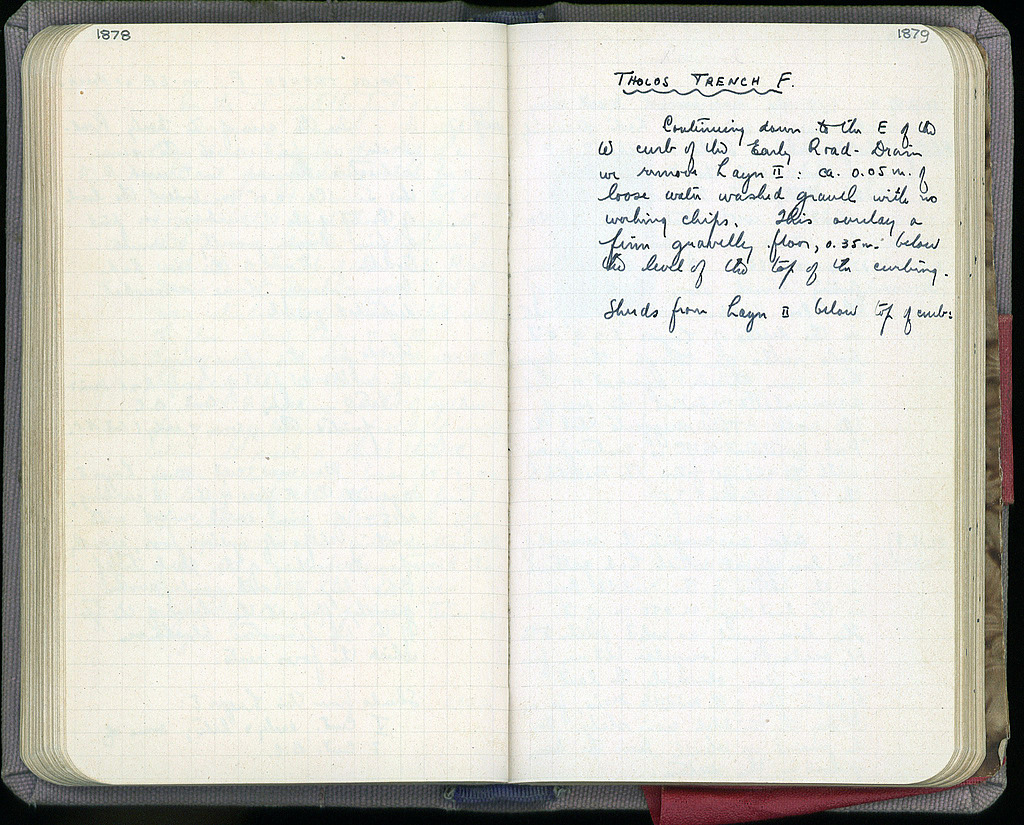 1878
1879
THOLOS TRENCH F.
Continuing down to the E of the
W curb of the Early Road-Drain
we remove Layer II : ca. 0.05 m. of
loose water washed gravel with no
working chips. This overlay a
firm gravelly floor, 0.35 m. below
the level of the top of the curbing.
Sherds from Layer II below top of curb: